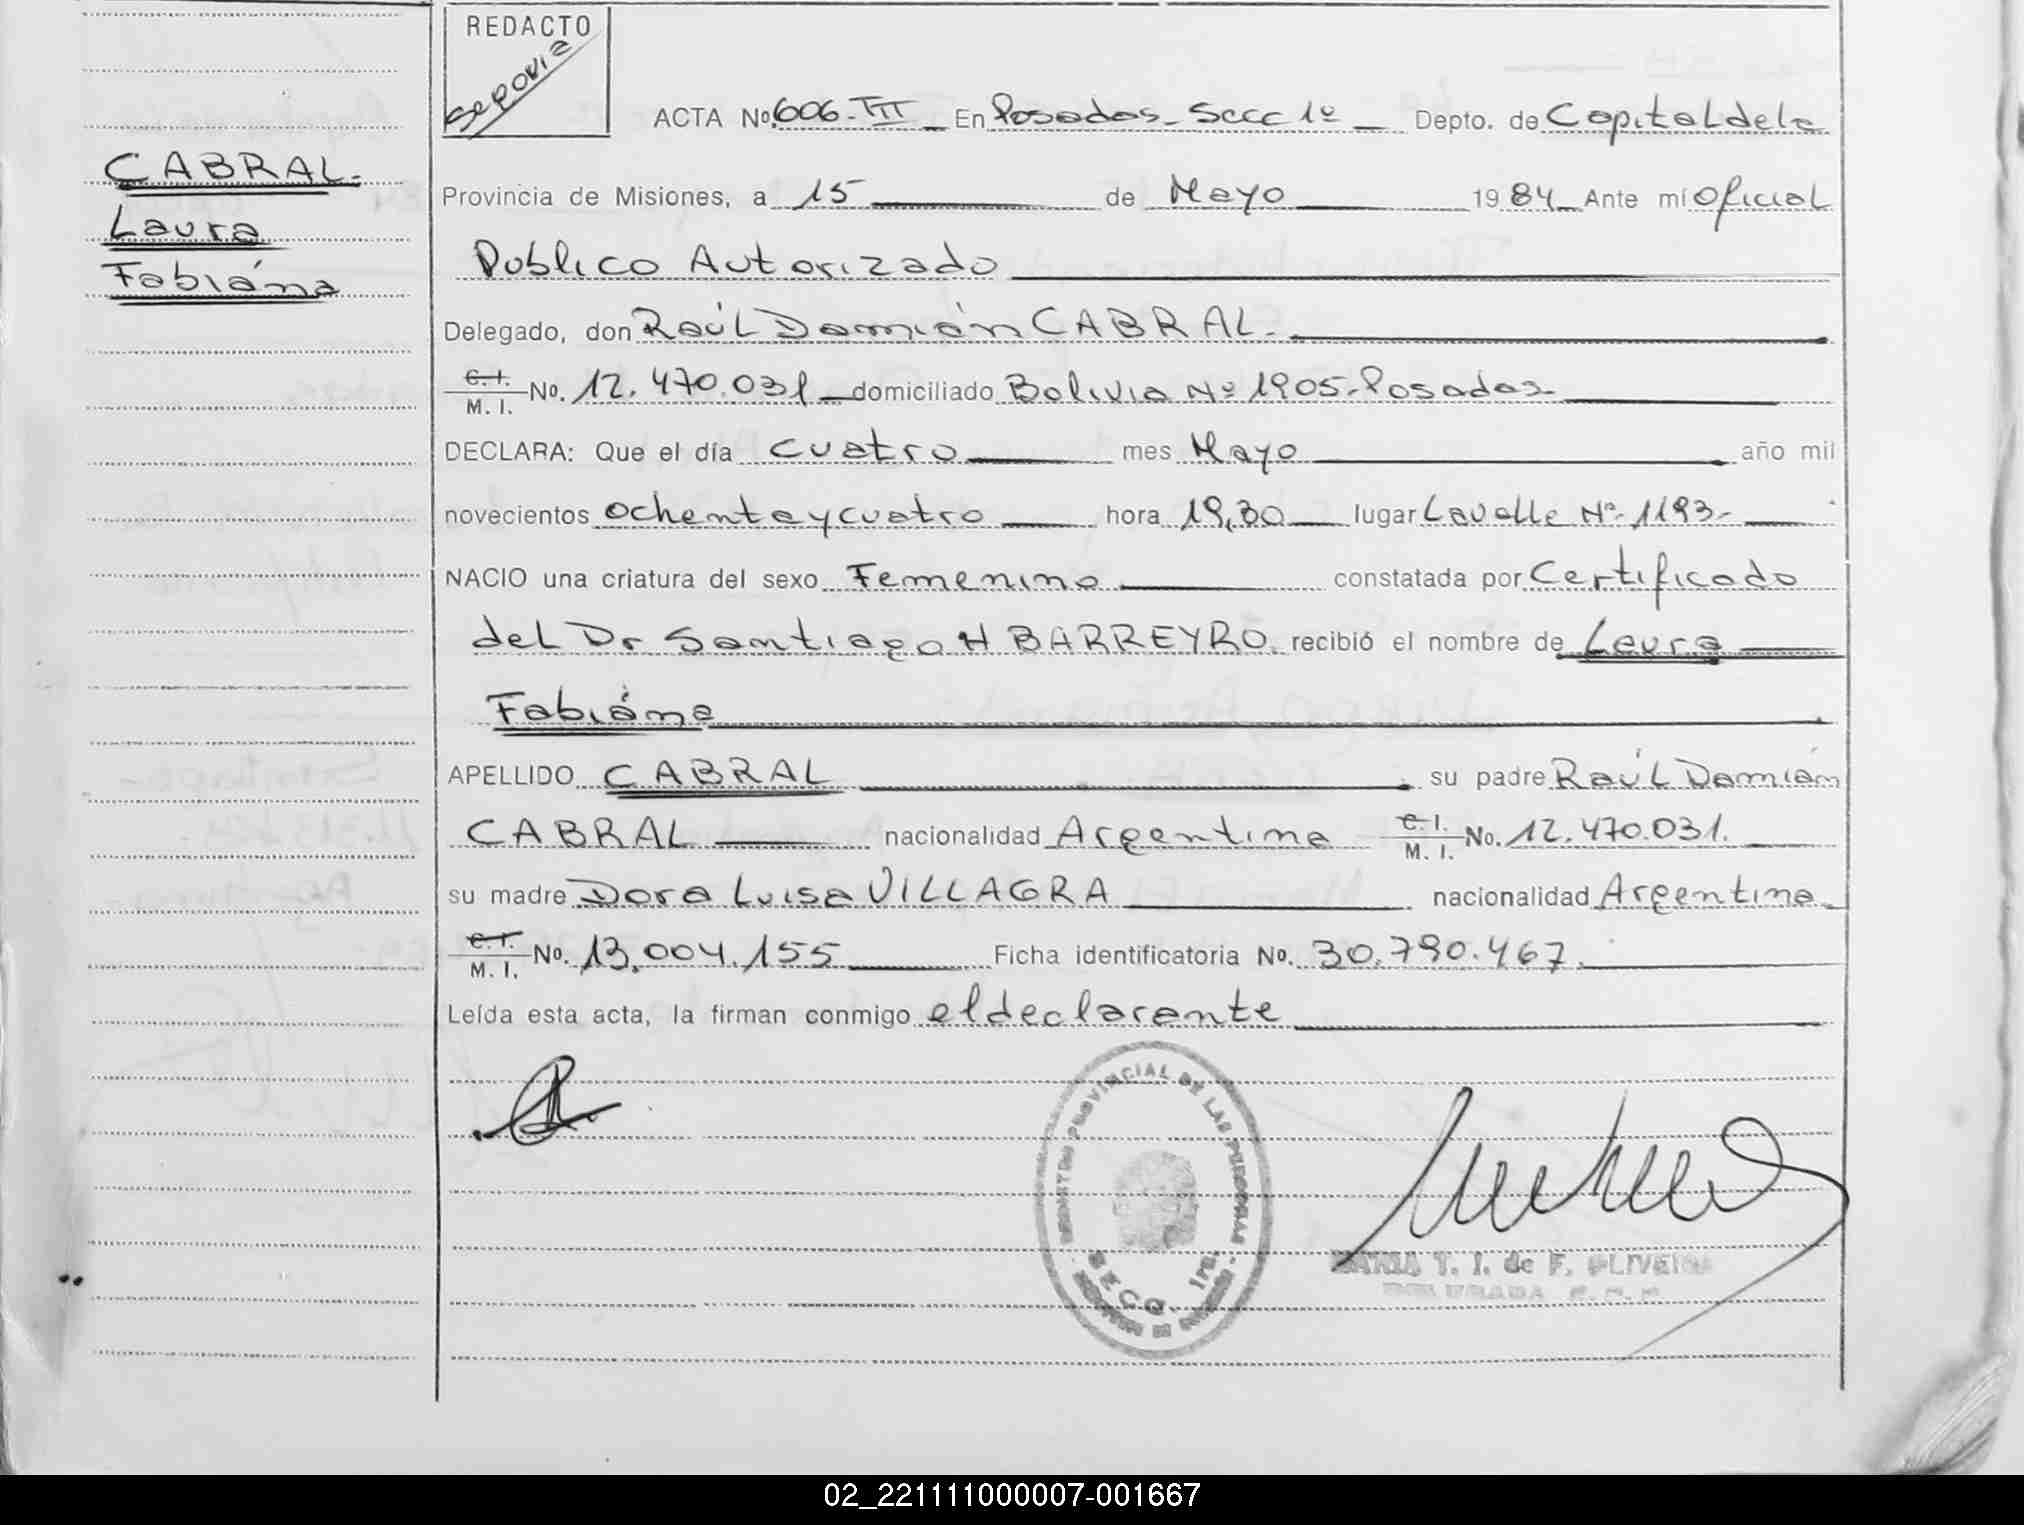 REDACTO
Segovia
ACTA No. 606-TIII En Posadas - Secc 1º Depto. de Capital de la
CABRAL.
Laura
Fabiána
Provincia de Misiones, a 15 de Mayo 1984 Ante mí Oficial
Publico Autorizado
Delegado, don Raúl Damián CABRAL.
C. I. M. I. No. 12.470.031 domiciliado Bolivia Nº 1905-Posadas
DECLARA: Que el día cuatro mes Mayo año mil
novecientos ochenta y cuatro hora 19,30 lugar Lavalle Nº 1193-
NACIO una criatura del sexo Femenino constatada por Certificado
del Dr Santiago H BARREYRO. recibió el nombre de Laura
Fabiána
APELLIDO CABRAL su padre Raúl Damián
CABRAL nacionalidad Argentina C. I. M. I. No. 12.470.031.
su madre Dora Luisa VILLAGRA nacionalidad Argentina
C. I. M. I. No. 13.004.155 Ficha identificatoria No. 30.790.467.
Leída esta acta, la firman conmigo el declarante
PROVINCIAL DE LAS PERSONAS
SECC. 1ra.
MARIA T. I. de F. OLIVEIRA
DELEGADA
02_221111000007-001667